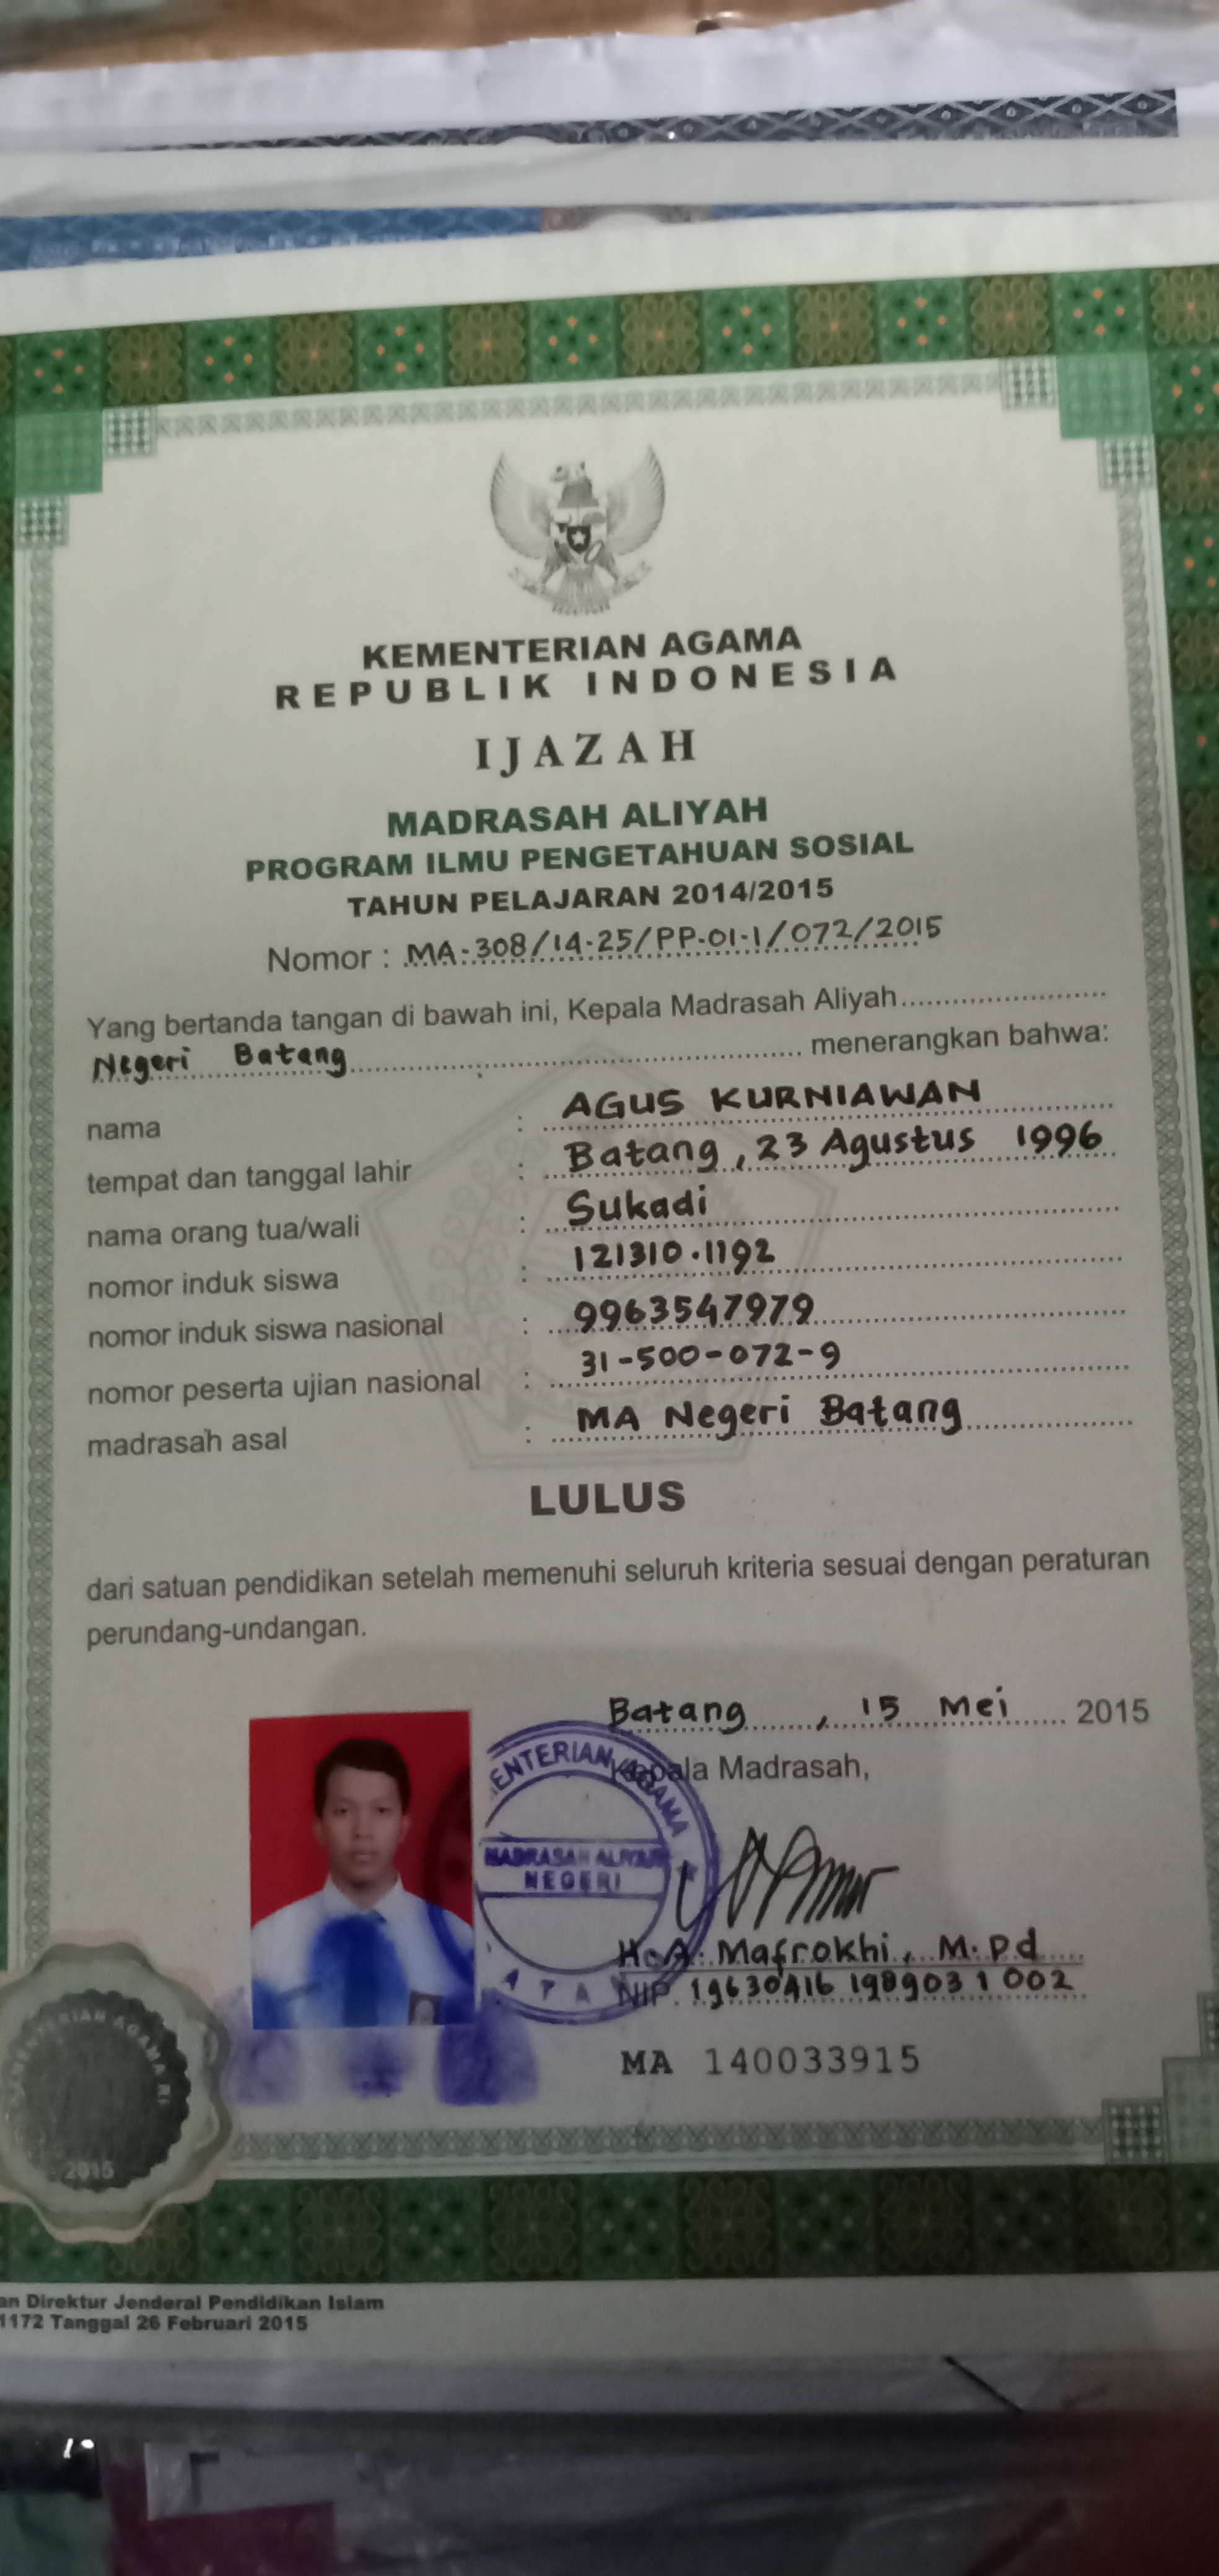 KEMENTERIAN AGAMA
REPUBLIK INDONESIA
IJAZAH
MADRASAH ALIYAH
PROGRAM ILMU PENGETAHUAN SOSIAL
TAHUN PELAJARAN 2014/2015
Nomor : MA-308/14-25/PP-01-1/072/2015
Yang bertanda tangan di bawah ini, Kepala Madrasah Aliyah
Negeri Batang menerangkan bahwa:
nama : AGUS KURNIAWAN
tempat dan tanggal lahir : Batang, 23 Agustus 1996
nama orang tua/wali : Sukadi
nomor induk siswa : 121310.1192
nomor induk siswa nasional : 9963547979
nomor peserta ujian nasional : 31-500-072-9
madrasah asal : MA Negeri Batang
LULUS
dari satuan pendidikan setelah memenuhi seluruh kriteria sesuai dengan peraturan
perundang-undangan.
Batang, 15 Mei 2015
Kepala Madrasah,
ENTERIAN AGAMA
MADRASAH ALIYAH
NEGERI
H. A. Mafrokhi, M.Pd
NIP. 19630416 198903 1 002
MA 140033915
KEMENTERIAN AGAMA RI
2015
an Direktur Jenderal Pendidikan Islam
1172 Tanggal 26 Februari 2015